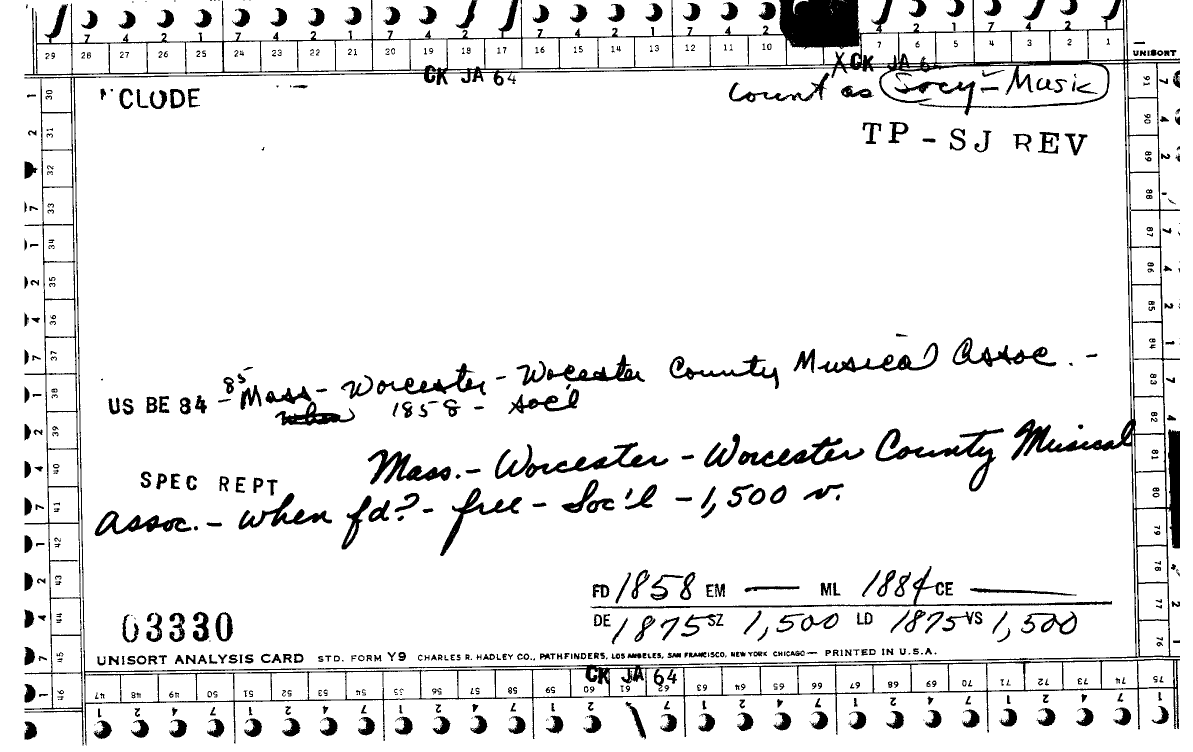 7 4 2 1 7 4 2 1 7 4 2 7 4 2 1 7 4 2 1
29 28 27 26 25 24 23 22 21 20 19 18 17 16 15 14 13 12 11 10 7 6 5 4 3 2 1 UNISORT
CK JA 64
XCK JA 6
CLUDE
Count as Socy - Music
TP - SJ REV
US BE 84 - 85 Mass - Worcester - Worcester County Musical Assoc. -
when 1858 - soc'l
SPEC REPT Mass. - Worcester - Worcester County Musical
Assoc. - when fd? - free - Soc'l - 1,500 v.
FD 1858 EM — ML 1884 CE —
DE 1875 SZ 1,500 LD 1875 VS 1,500
03330
UNISORT ANALYSIS CARD STD. FORM Y9 CHARLES R. HADLEY CO., PATHFINDERS, LOS ANGELES, SAN FRANCISCO, NEW YORK CHICAGO — PRINTED IN U.S.A.
CK JA 64
30 31 32 33 34 35 36 37 38 39 40 41 42 43 44 45 46
47 48 49 50 51 52 53 54 55 56 57 58 59 60 61 62 63 64 65 66 67 68 69 70 71 72 73 74 75
91 90 89 88 87 86 85 84 83 82 81 80 79 78 77 76